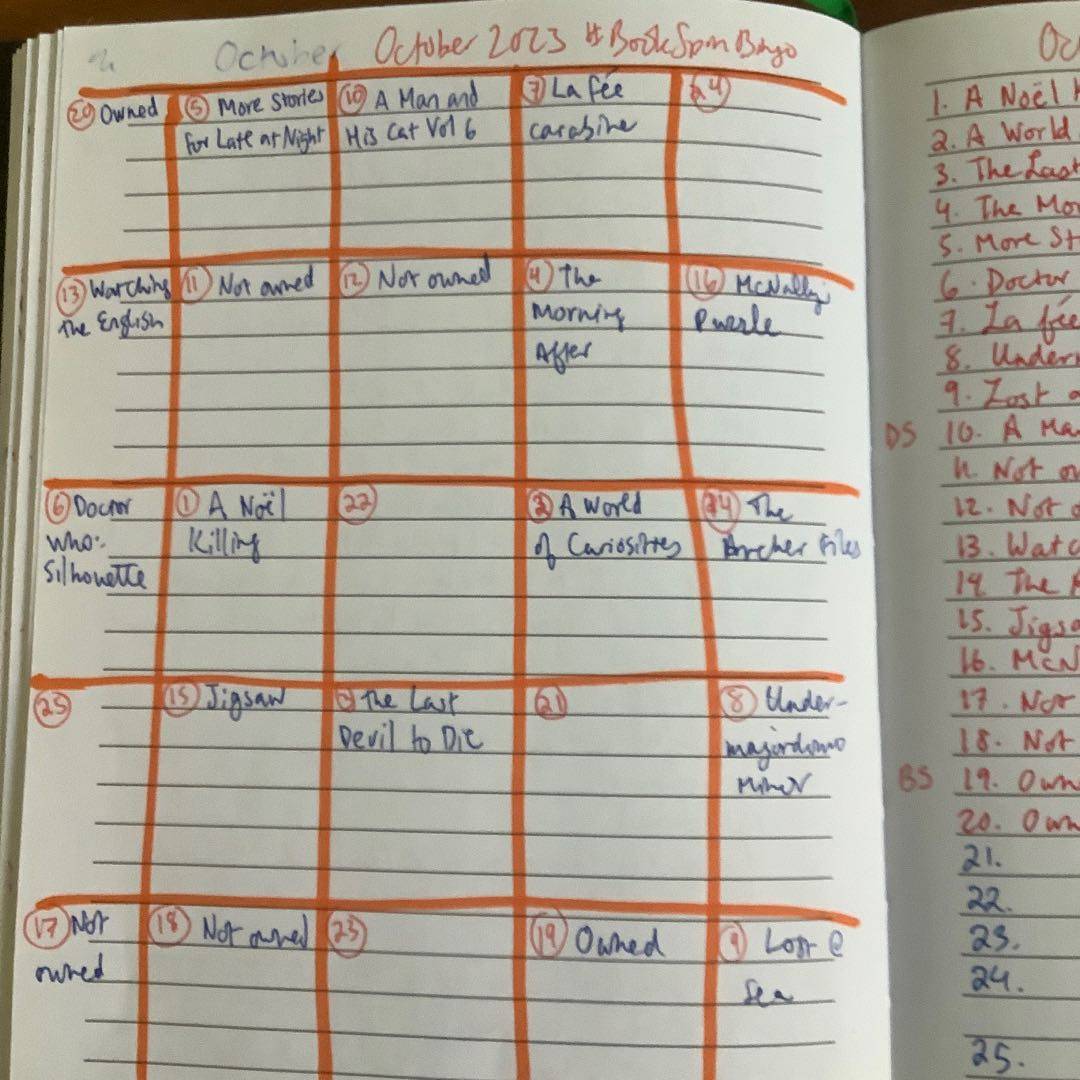 October October 2023 #BookSpinBingo
20 Owned
5 More Stories
For Late at Night
10 A Man and
His Cat Vol 6
7 La fée
carabine
24
13 Watching
The English
11 Not owned
12 Not owned
4 The
Morning
After
16 McNally's
Puzzle
6 Doctor
Who:
Silhouette
1 A Noël
Killing
22
2 A World
of Curiosities
14 The
Archer Files
25
15 Jigsaw
3 The Last
Devil to Die
21
8 Under-
majordomo
Minor
17 Not
owned
18 Not owned
23
19 Owned
9 Lost @
Sea
1. A Noël
2. A World
3. The Last
4. The Mor
5. More St
6. Doctor
7. La fée
8. Under
9. Lost
DS 10. A Ma
11. Not ow
12. Not o
13. Watc
14. The A
15. Jigsa
16. McN
17. Not
18. Not
BS 19. Own
20. Own
21.
22.
23.
24.
25.